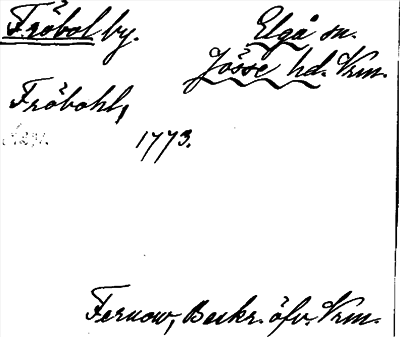 Fröbol by. Elgå sn.
Jösse hd. Vrm.
Fröbohl,
1773.
Fernow, Beskr. öfv. Vrm.